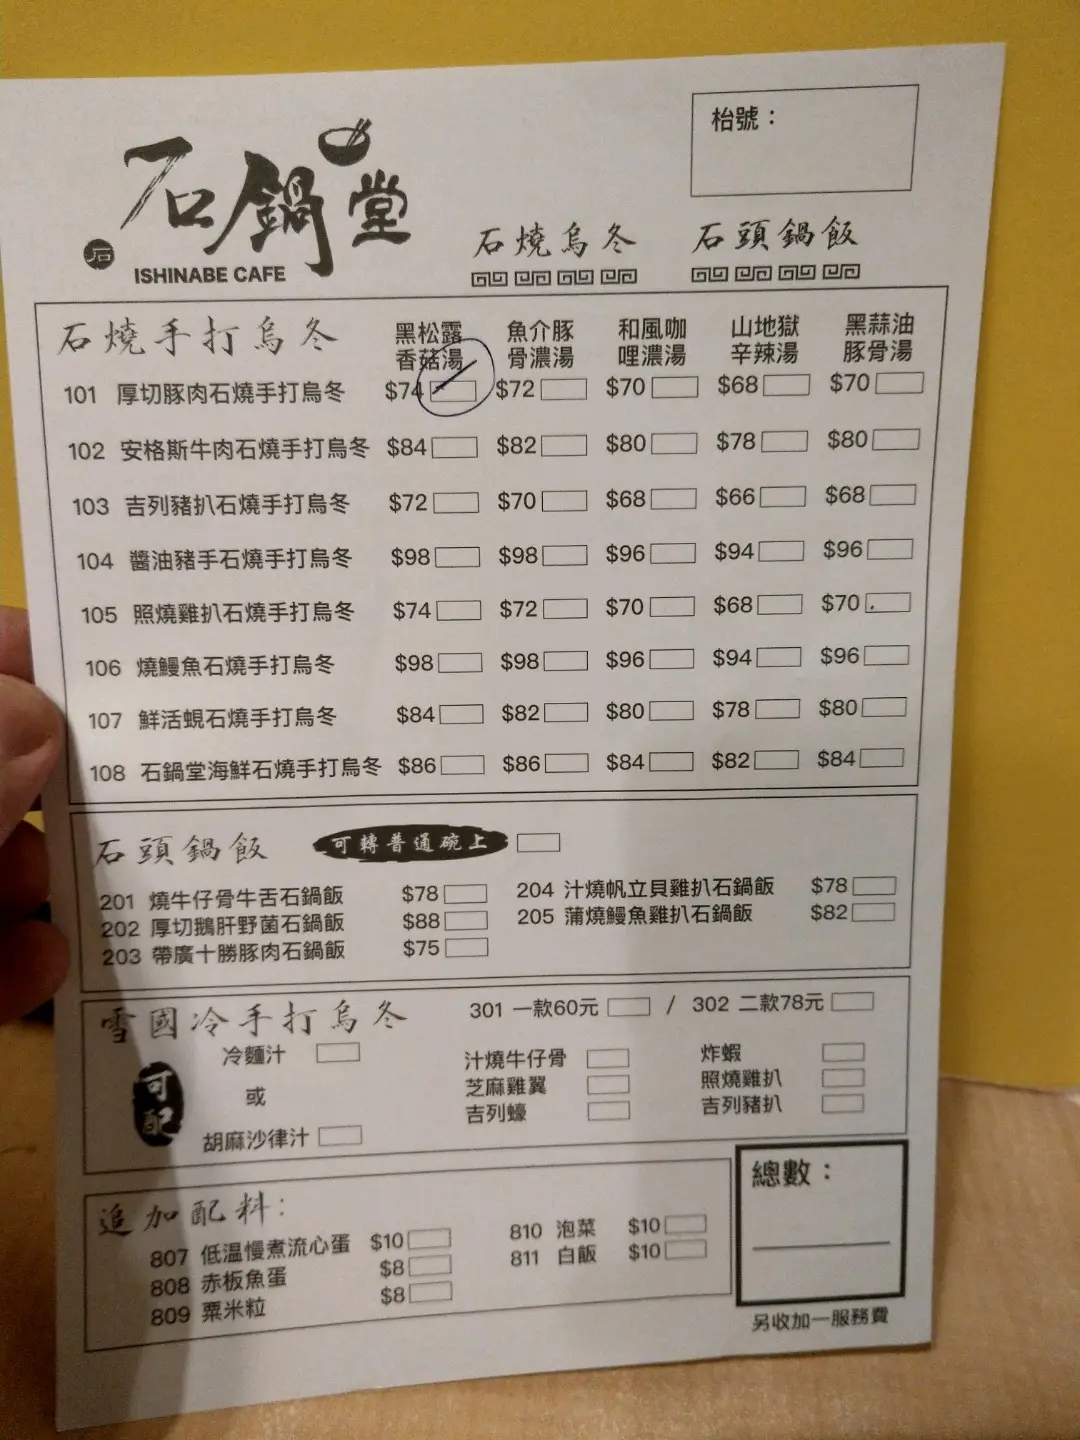 枱號：
石鍋堂
石
ISHINABE CAFE
石燒烏冬 石頭鍋飯
石燒手打烏冬 黑松露香菇湯 魚介豚骨濃湯 和風咖哩濃湯 山地獄辛辣湯 黑蒜油豚骨湯
101 厚切豚肉石燒手打烏冬 $74 $72 $70 $68 $70
102 安格斯牛肉石燒手打烏冬 $84 $82 $80 $78 $80
103 吉列豬扒石燒手打烏冬 $72 $70 $68 $66 $68
104 醬油豬手石燒手打烏冬 $98 $98 $96 $94 $96
105 照燒雞扒石燒手打烏冬 $74 $72 $70 $68 $70
106 燒鰻魚石燒手打烏冬 $98 $98 $96 $94 $96
107 鮮活蜆石燒手打烏冬 $84 $82 $80 $78 $80
108 石鍋堂海鮮石燒手打烏冬 $86 $86 $84 $82 $84
石頭鍋飯 可轉普通碗上
201 燒牛仔骨牛舌石鍋飯 $78 204 汁燒帆立貝雞扒石鍋飯 $78
202 厚切鵝肝野菌石鍋飯 $88 205 蒲燒鰻魚雞扒石鍋飯 $82
203 帶廣十勝豚肉石鍋飯 $75
雪國冷手打烏冬 301 一款60元 / 302 二款78元
可配
冷麵汁 汁燒牛仔骨 炸蝦
或 芝麻雞翼 照燒雞扒
胡麻沙律汁 吉列蠔 吉列豬扒
追加配料：
807 低溫慢煮流心蛋 $10 810 泡菜 $10
808 赤板魚蛋 $8 811 白飯 $10
809 粟米粒 $8
總數：
另收加一服務費